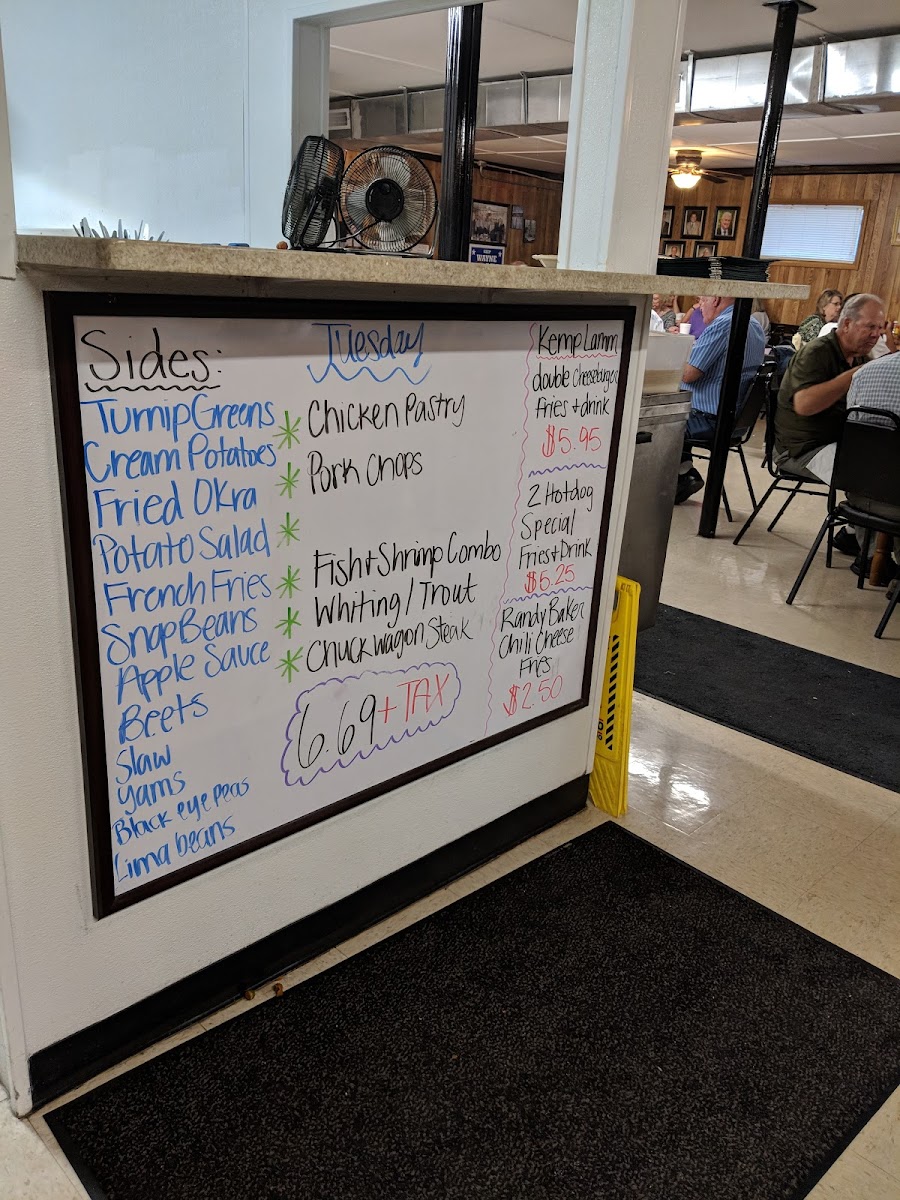 Sides:
Turnip Greens
Cream Potatoes
Fried Okra
Potato Salad
French Fries
Snap Beans
Apple Sauce
Beets
Slaw
Yams
Black eye peas
Lima beans
Tuesday
Chicken Pastry
Pork Chops
Fish + Shrimp Combo
Whiting / Trout
Chuckwagon Steak
6.69 + TAX
Kemp Lamm
double Cheeseburger
fries + drink
$5.95
2 Hotdog
Special
Fries + Drink
$5.25
Randy Baker
Chili Cheese
Fries
$2.50
WAYNE